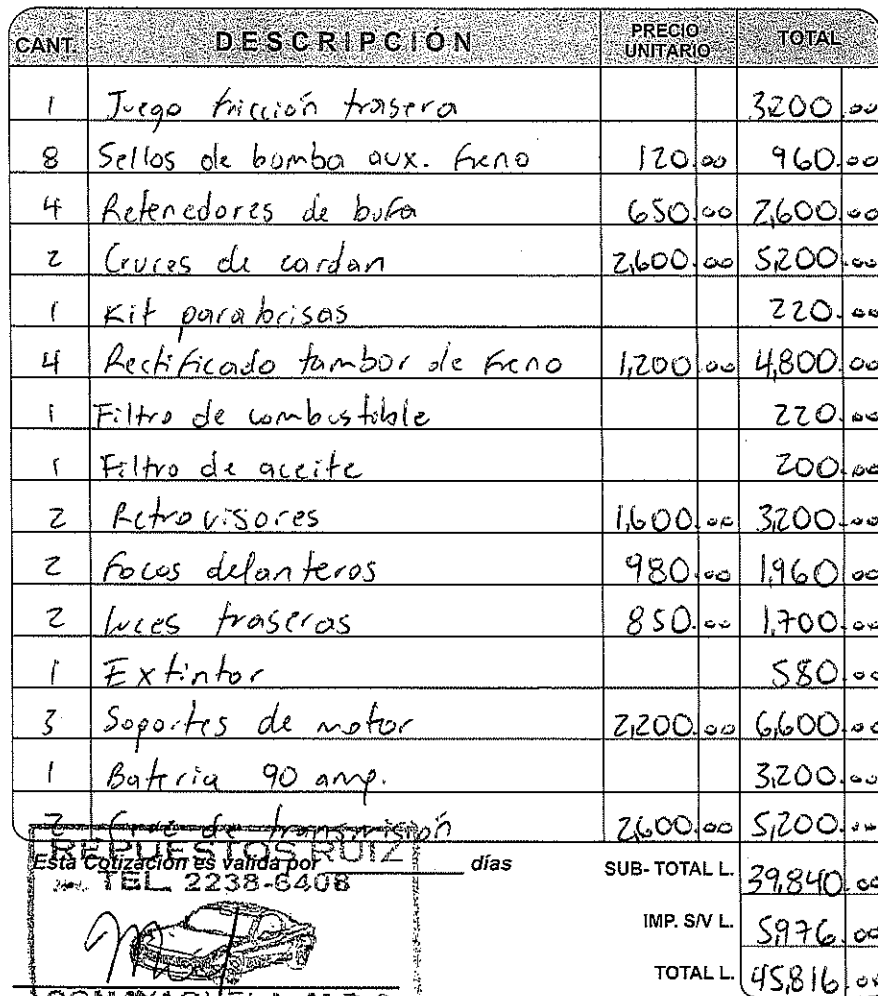 CANT. DESCRIPCIÓN PRECIO UNITARIO TOTAL
1 Juego fricción trasera 3200.00
8 Sellos de bomba aux. freno 120.00 960.00
4 Retenedores de bufa 650.00 2,600.00
2 Cruces de cardan 2,600.00 5,200.00
1 Kit parabrisas 220.00
4 Rectificado tambor de freno 1,200.00 4,800.00
1 Filtro de combustible 220.00
1 Filtro de aceite 200.00
2 Retrovisores 1,600.00 3,200.00
2 focos delanteros 980.00 1,960.00
2 luces traseras 850.00 1,700.00
1 Extintor 580.00
3 Soportes de motor 2,200.00 6,600.00
1 Bateria 90 amp. 3,200.00
2 Cruz de transmisión 2,600.00 5,200.00
REPUESTOS RUIZ
Esta Cotización es valida por días SUB-TOTAL L. 39,840.00
TEL. 2238-6408
IMP. S/V L. 5,976.00
TOTAL L. 45,816.00